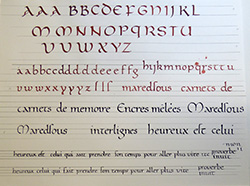 AAA BBCDEFGNIJKL
MMMNOPQRSTU
VUVWXYZ
aabbccddddeeeffg hijkmnopqrstu
vwwxxyyyzz maredsous carnets de
carnets de memoire Encres mêlées Maredsous
Maredsous interlignes heureux est celui
heureux est celui qui sait prendre son temps pour aller plus vite proverbe
heureux est celui qui sait prendre son temps pour aller plus vite proverbe inuit